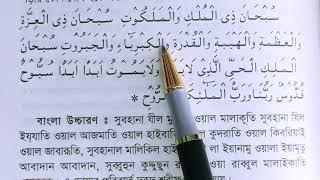 سُبْحَانَ ذِى الْمُلْكِ وَالْمَلَكُوْتِ سُبْحَانَ ذِى الْعِزَّةِ
وَالْعَظَمَةِ وَالْهَيْبَةِ وَالْقُدْرَةِ وَالْكِبْرِيَاءِ وَالْجَبَرُوْتِ سُبْحَانَ
الْمَلِكِ الْحَيِّ الَّذِىْ لَايَنَامُ وَلَايَمُوْتُ اَبَدًا اَبَدًا سُبُّوْحٌ
قُدُّوْسٌ رَبُّنَا وَرَبُّ الْمَلٰئِكَةِ وَالرُّوْحِ *
বাংলা উচ্চারণ : সুবহানা যীল মুলকি ওয়াল মালাকূতি সুবহানা যিল
ইয্যাতি ওয়াল আজমাতি ওয়াল হাইবাতি ওয়াল কুদরাতি ওয়াল কিবরিয়াই
ওয়াল জাবারূতি, সুবহানাল মালিকিল হাইয়্যিল লা ইয়ানামু ওয়ালা ইয়ামুতু
আবাদান আবাদান, সুব্বুহুন কুদ্দূছুন ওয়া রাব্বুল মালাইকাতি